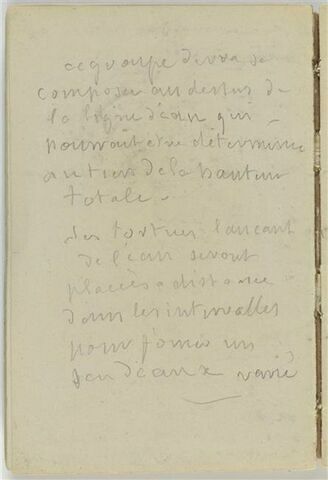 ce groupe devra se
composer au dessus de
la ligne d'eau qui
pourrait etre déterminée
au tiers de la hauteur
totale.
des tortues lançant
de l'eau seront
placées a distance
dans les intervalles
pour former un
jeu d'eaux varié